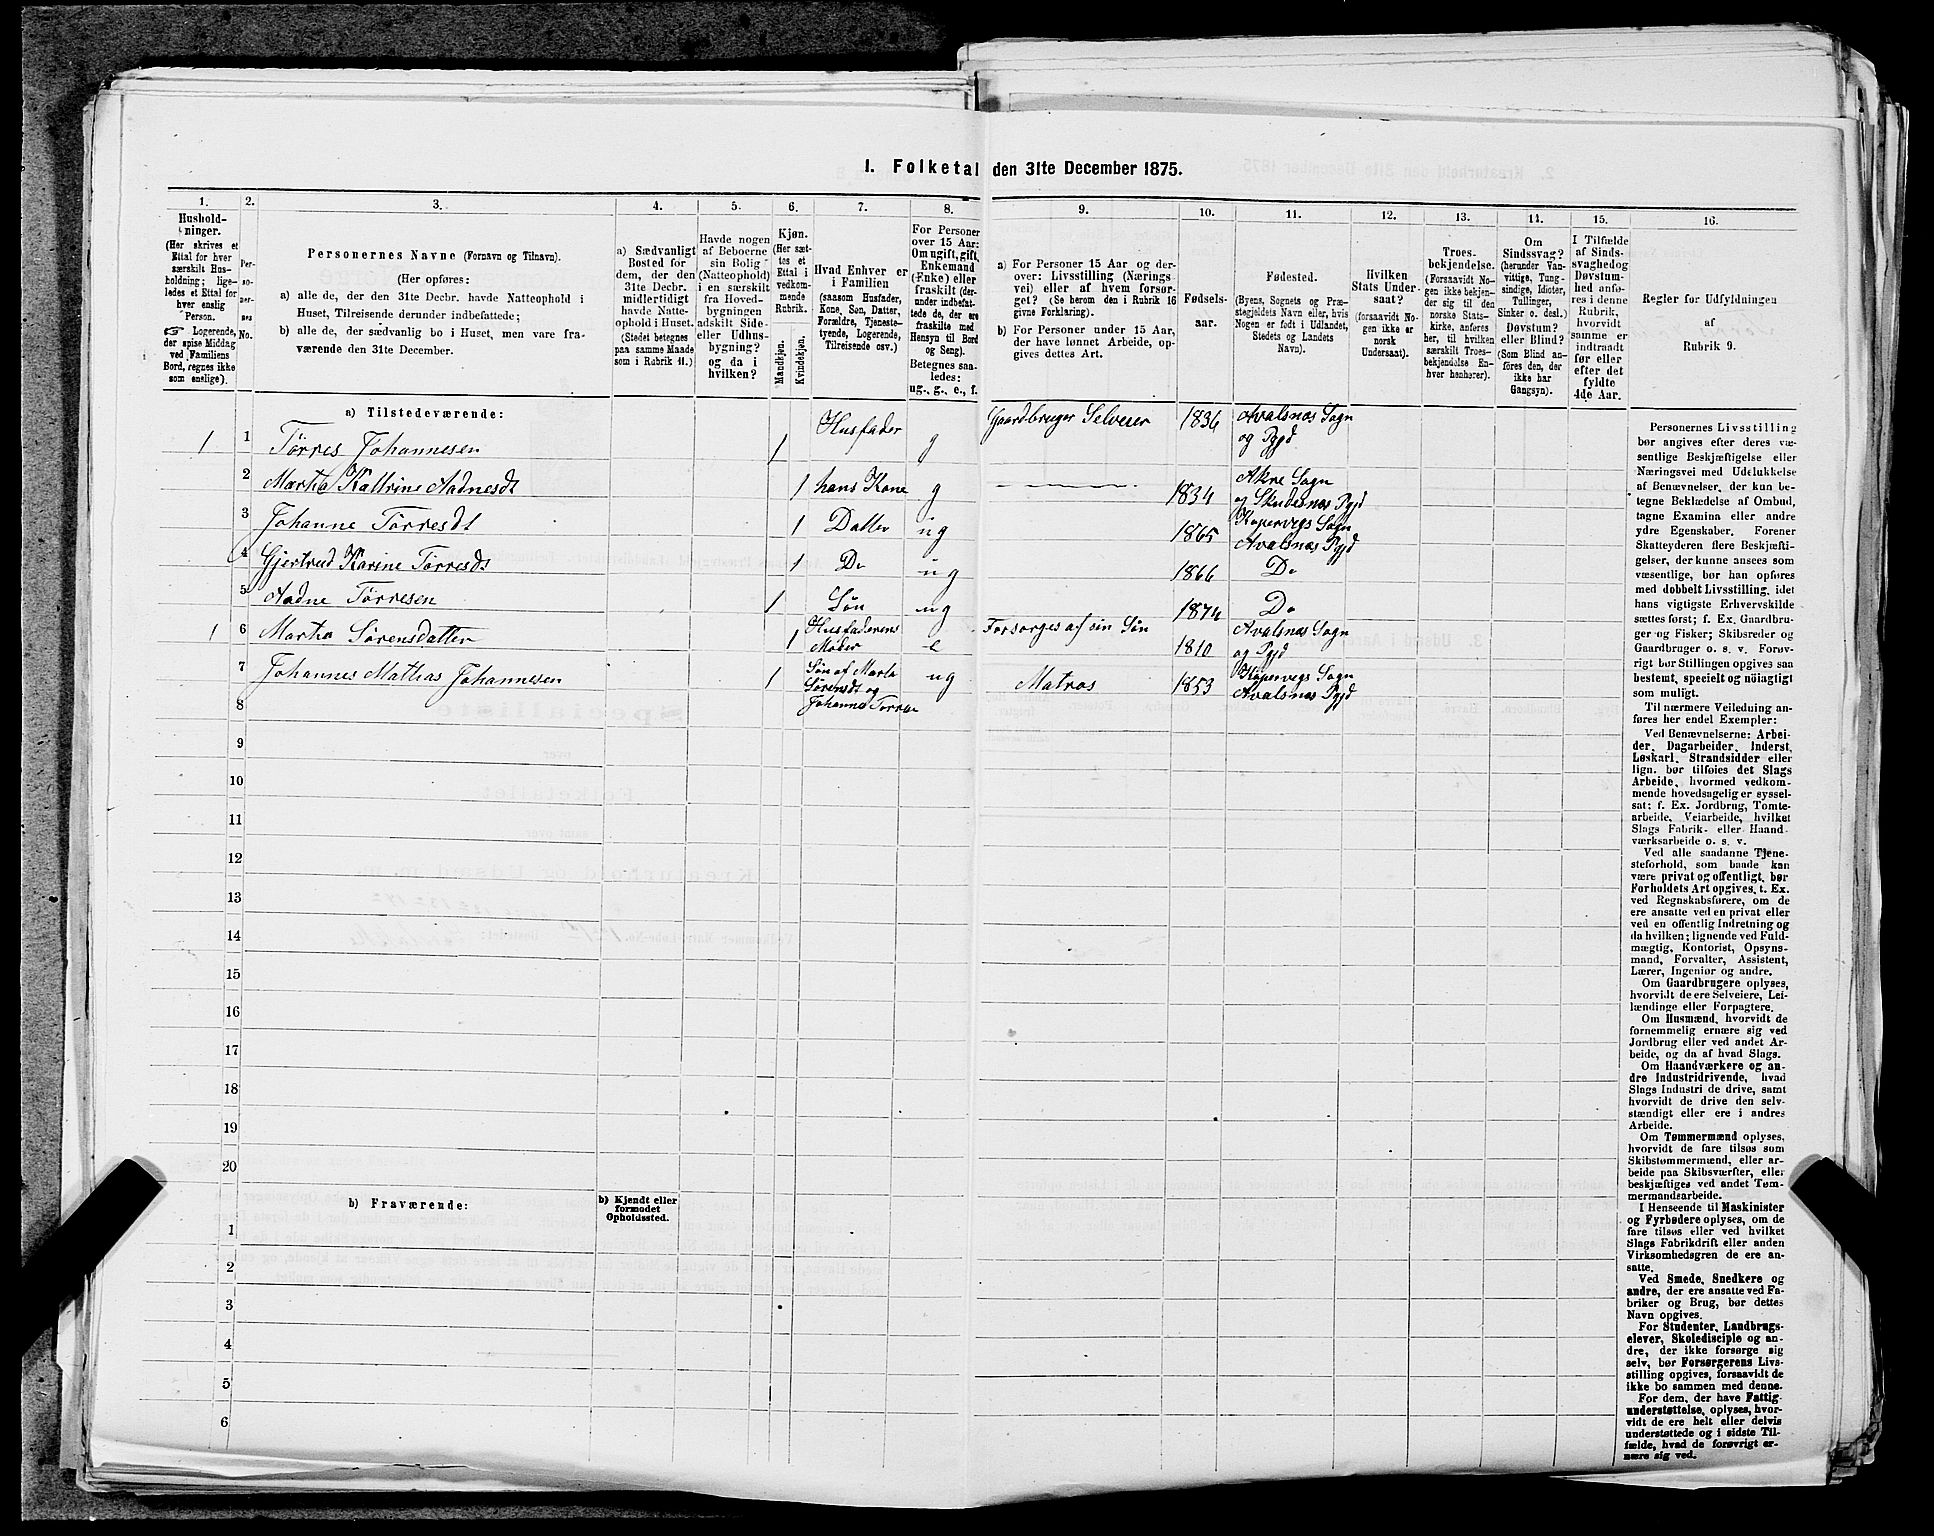 1. Folketal den 31te December 1875.
1. 2. 3. 4. 5. 6. 7. 8. 9. 10. 11. 12. 13. 14. 15. 16.
Hushold-
ninger.
(Her skrives et
Ettal for hver
særskilt Hus-
holdning; lige-
ledes et Ettal for
hver enslig
Person.
☞ Logerende,
der spise Middag
ved Familiens
Bord, regnes ikke
som enslige).
Per-
so-
ner-
nes
No.
Personernes Navne (Fornavn og Tilnavn).
(Her opføres:
a) alle de, der den 31te Decbr. havde Natteophold i
Huset, Tilreisende derunder indbefattede;
b) alle de, der sædvanlig bo i Huset, men vare fra-
værende den 31te December.
a) Sædvanligt
Bosted for
dem, der den
31te Decbr.
midlertidigt
havde Natte-
ophold i Huset.
(Stedet betegnes
paa samme Maade
som i Rubrik 11.)
Havde nogen
af Beboerne
sin Bolig
(Natteophold)
i en særskilt
fra Hoved-
bygningen
adskilt Side-
eller Udhus-
bygning?
og da i
hvilken?
Kjøn.
(Her sæt-
tes et
Ettal i
vedkom-
mende
Rubrik.
Mandkjøn.
Kvindekjøn.
Hvad Enhver er
i Familien
(saasom Husfader,
Kone, Søn, Datter,
Forældre, Tjeneste-
tyende, Logerende,
Tilreisende osv.)
For Personer
over 15 Aar:
Om ugift, gift,
Enkemand
(Enke) eller
fraskilt (der-
under indbefat-
tede de, der ere
fraskilte med
Hensyn til Bord
og Seng).
Betegnes saa-
ledes:
ug., g., e., f.
a) For Personer 15 Aar og der-
over: Livsstilling (Nærings-
vei) eller af hvem forsør-
get? (Se herom den i Rubrik 16
givne Forklaring).
b) For Personer under 15 Aar,
der have lønnet Arbeide, op-
gives dettes Art.
Fødsels-
aar.
Fødested.
(Byens, Sognets og Præ-
stegjeldets Navn eller, hvis
Nogen er født i Udlandet,
Stedets og Landets
Navn).
Hvilken
Stats Under-
saat?
(forsaavidt No-
gen ikke er
norsk
Undersaat).
Troes-
bekjendelse.
(Forsaavidt No-
gen ikke bekjen-
der sig til den
norske Stats-
kirke, anføres
her, til hvilken
særskilt Troes-
bekjendelse En-
hver henhører).
Om
Sindssvag?
(herunder Van-
vittige, Tung-
sindige, Idioter,
Tullinger,
Sinker o. desl.)
Døvstum?
eller Blind?
(Som Blind an-
føres den, der
ikke har
Gangsyn).
I Tilfælde
af Sinds-
svaghed og
Døvstum-
hed anfø-
res i denne
Rubrik,
hvorvidt
samme er
indtraadt
før eller
efter det
fyldte
4de Aar.
Regler for Udfyldningen
af
Rubrik 9.
a) Tilstedeværende:
1 1 Tørres Johannesen 1 Husfader g Gaardbruger Selveier 1836 Avalsnæs Sogn
og Pgjd
2 Martha Kathrine Aadnesdt 1 hans Kone g 1834 Akre Sogn
og Skudesnæs Pgjd
3 Johanne Tørresdt 1 Datter ug 1865 Kopervigs Sogn
Avalsnæs Pgjd
4 Gjertrud Karine Tørresdt 1 Do ug 1866 Do
5 Aadne Tørresen 1 Søn ug 1874 Do
1 6 Martha Sørensdatter 1 Husfaderens
Moder e Forsørges af sin Søn 1810 Avalsnæs Sogn
og Pgjd
7 Johannes Mathias Johannesen 1 Søn af Marta
Sørensdt og
Johannes Tørres ug Matros 1853 Kopervigs Sogn
Avalsnæs Pgjd
8
9
10
11
12
13
14
15
16
17
18
19
20
b) Fraværende:
b) Kjendt eller
formodet
Opholdssted.
1
2
3
4
5
6
Personernes Livsstilling
bør angives efter deres væ-
sentlige Beskjæftigelse eller
Næringsvei med Udelukkelse
af Benævnelser, der kun be-
tegne Beklædelse af Ombud,
tagne Examina eller andre
ydre Egenskaber. Forener
Skatteyderen flere Beskjæfti-
gelser, der kunne ansees som
væsentlige, bør han opføres
med dobbelt Livsstilling, idet
hans vigtigste Erhvervskilde
sættes først; f. Ex. Gaardbru-
ger og Fisker; Skibsreder og
Gaardbruger o. s. v. Forøv-
rigt bør Stillingen opgives saa
bestemt, specielt og nöiagtigt
som muligt.
Til nærmere Veiledning an-
føres her endel Exempler:
Ved Benævnelserne: Arbei-
der, Dagarbeider, Inderst,
Løskarl, Strandsidder eller
lign. bør tilføies det Slags
Arbeide, hvormed vedkom-
mende hovedsagelig er syssel-
sat; f. Ex. Jordbrug, Tomte-
arbeide, Veiarbeide, hvilket
Slags Fabrik- eller Haand-
værksarbeide o. s. v.
Ved alle saadanne Tjene-
steforhold, som baade kan
være privat og offentligt, bør
Forholdets Art opgives, t. Ex.
ved Regnskabsførere, om de
ere ansatte ved en privat eller
ved en offentlig Indretning og
da hvilken; lignende ved Fuld-
mægtig, Kontorist, Opsyns-
mand, Forvalter, Assistent,
Lærer, Ingeniør og andre.
Om Gaardbrugere oplyses,
hvorvidt de ere Selveiere, Lei-
lændinge eller Forpagtere.
Om Husmænd, hvorvidt de
fornemmelig ernære sig ved
Jordbrug eller ved andet Ar-
beide, og da af hvad Slags.
Om Haandværkere og an-
dre Industridrivende, hvad
Slags Industri de drive, samt
hvorvidt de drive den selv-
stændigt eller ere i andres
Arbeide.
Om Tømmermænd oplyses,
hvorvidt de fare tilsøs som
Skibstømmermænd, eller ar-
beide paa Skibsværfter, eller
beskjæftiges ved andet Tøm-
mermandsarbeide.
I Henseende til Maskinister
og Fyrbødere oplyses, om de
fare tilsøs eller ved hvilket
Slags Fabrikdrift eller anden
Virksomhedsgren de ere an-
satte.
Ved Smede, Snedkere og
andre, der ere ansatte ved Fa-
briker og Brug, bør dettes
Navn opgives.
For Studenter, Landbrugs-
elever, Skoledisciple og an-
dre, der ikke forsørge sig
selv, bør Forsørgerens Livs-
stilling opgives, forsaavidt de
ikke bo sammen med denne.
For dem, der have Fattig-
understøttelse, oplyses, hvor-
vidt de ere helt eller delvis
understøttede og i sidste Til-
fælde, hvad de forøvrigt er-
nære sig ved.